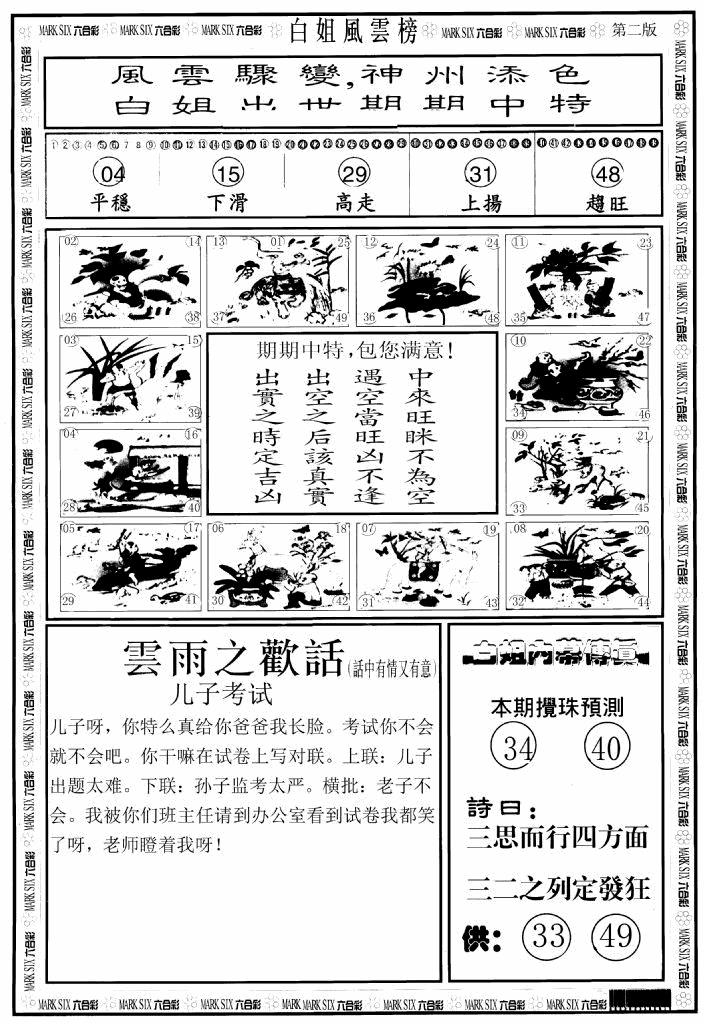 MARK SIX 六合彩 MARK SIX 六合彩 白姐風雲榜 MARK SIX 六合彩 MARK SIX 六合彩 第二版
風雲驟變,神州添色
白姐出世期期中特
04 15 29 31 48
平穩 下滑 高走 上揚 趨旺
02 14 13 01 25 12 24 11 23
26 38 37 49 36 48 35 47
03 15
27 39
04 16
28 40
期期中特,包您满意!
中來旺眯不為空
遇空當旺凶不逢
出空之后該真實
出實之時定吉凶
10 22
34 46
09 21
33 45
05 17 06 18 07 19 08 20
29 41 30 42 31 43 32 44
雲雨之歡話(話中有情又有意)
儿子考试
儿子呀，你特么真给你爸爸我长脸。考试你不会
就不会吧。你干嘛在试卷上写对联。上联：儿子
出题太难。下联：孙子监考太严。横批：老子不
会。我被你们班主任请到办公室看到试卷我都笑
了呀，老师瞪着我呀！
白姐内幕傳真
本期攪珠預測
34 40
詩曰：
三思而行四方面
三二之列定發狂
供： 33 49
MARK SIX 六合彩 MARK SIX 六合彩 MARK SIX 六合彩 MARK SIX 六合彩 MARK SIX 六合彩 MARK SIX 六合彩 MARK SIX 六合彩